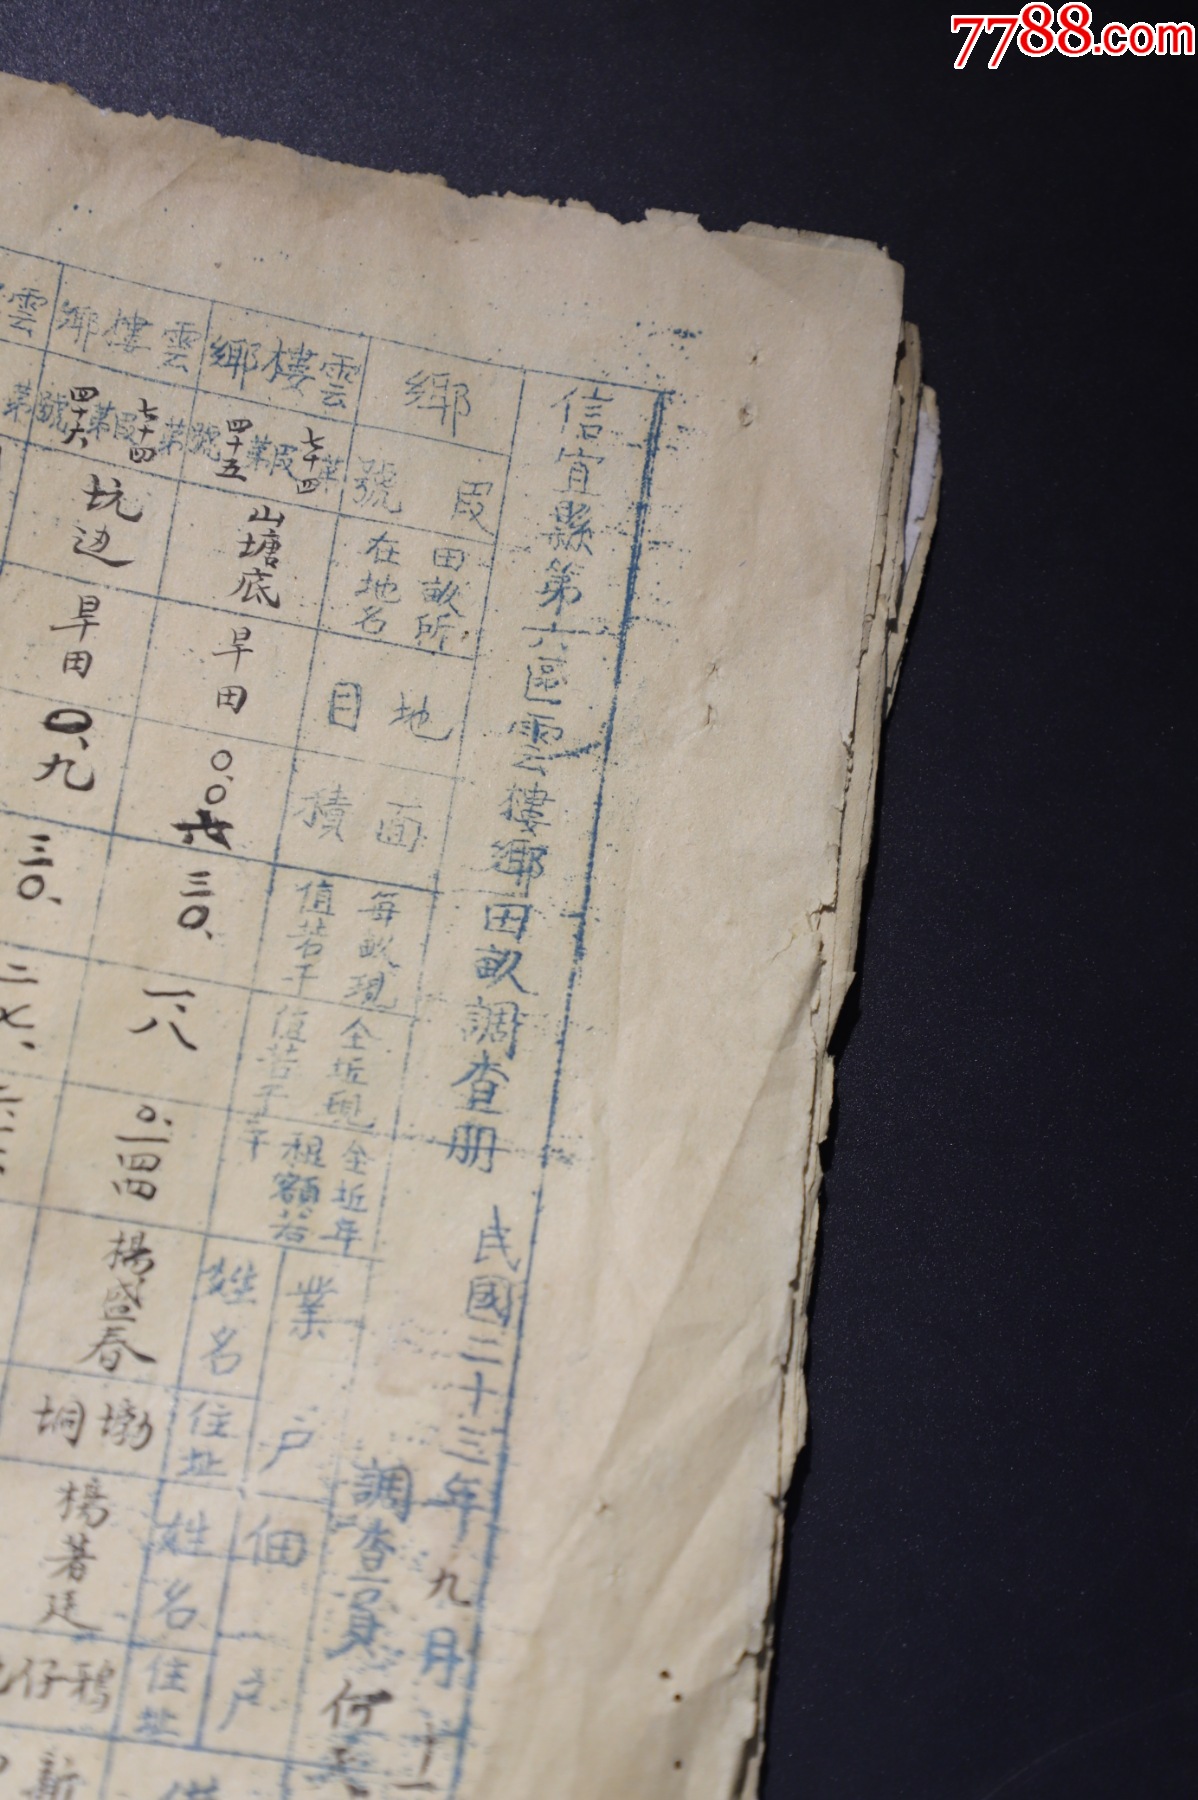 7788.com
信宜縣第六區雲樓鄉田畝調查册
民國二十三年九月十一
調查員何
鄉
段號
田畝所在地名
地目
面積
每畝現值若干
全坵現值若干
全坵年租額若干
業戶
姓名
住址
佃戶
姓名
住址
雲樓鄉
第七十四段第四十五號
山塘底
旱田
三〇、
一、八
〇、一四四
楊盛春
垌
楊著廷
鴉仔
新
雲樓鄉
第七十四段第四十六號
坑边
旱田
〇、九
三〇、
二七、
雲
第